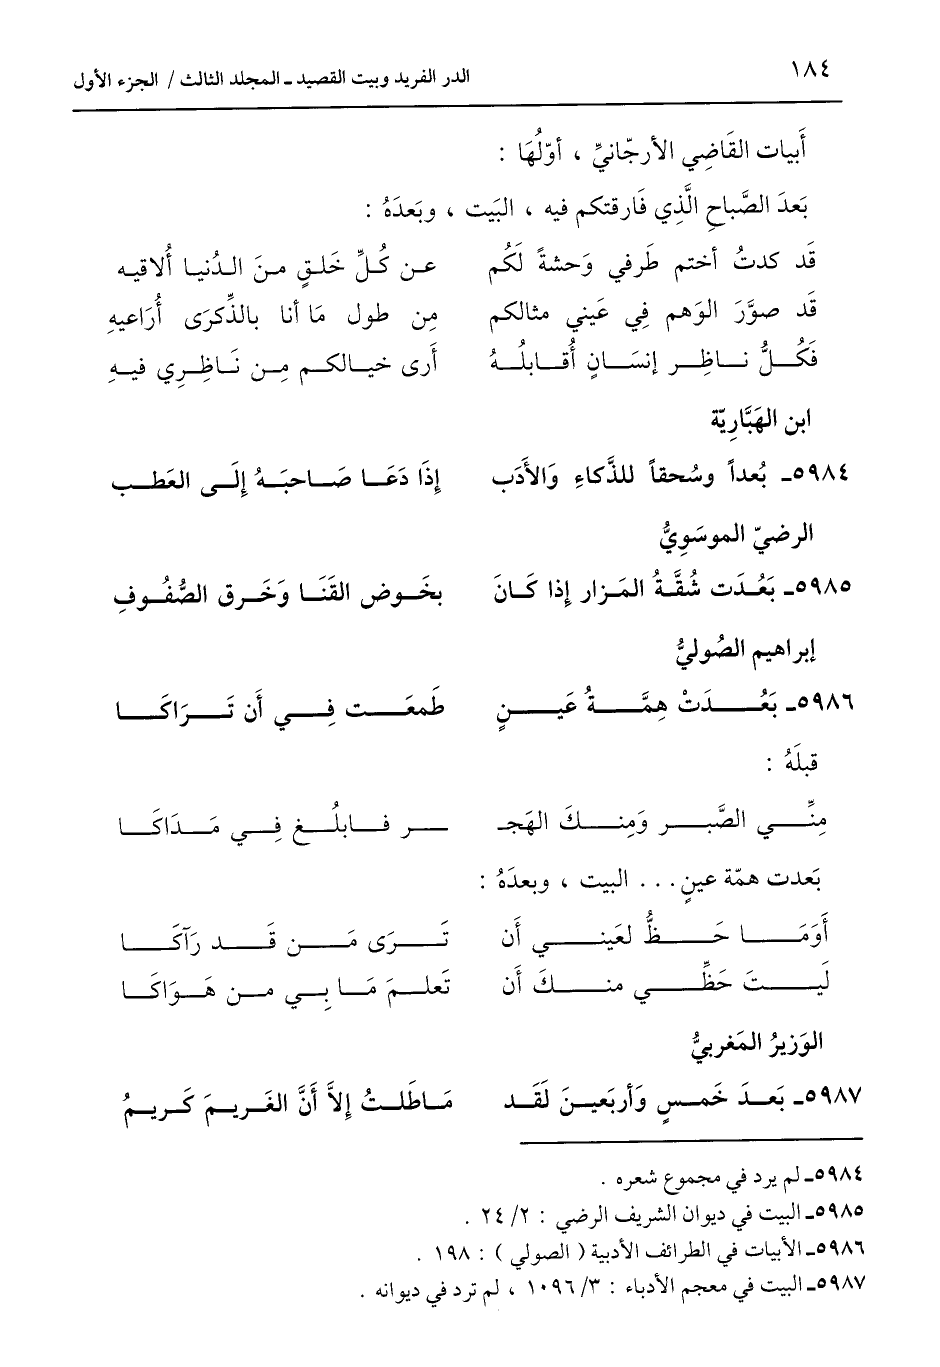 ١٨٤ الدر الفريد وبيت القصيد ـ المجلد الثالث / الجزء الأول
أَبيات القَاضِي الأرجّانيِّ ، أوّلُهَا :
بَعدَ الصَّباحِ الَّذِي فَارقتكم فيه ، البَيت ، وبَعدَهُ :
قَد كدتُ أختم طَرفي وَحشةً لَكُم عن كُلِّ خَلقٍ منَ الدُنيا أُلاقيه
قَد صوَّرَ الوَهم فِي عَيني مثالكم مِن طول مَا أنا بالذِّكرَى أُرَاعيهِ
فَكُلُّ نَاظِر إنسَانٍ أُقَابلُهُ أَرى خيالكم مِن نَاظِري فيهِ
ابن الهَبَّاريّة
٥٩٨٤ـ بُعداً وسُحقاً للذَّكاءِ وَالأَدَب إِذَا دَعَا صَاحبَهُ إِلَى العَطب
الرضيّ الموسَوِيُّ
٥٩٨٥ـ بَعُدَت شُقَّةُ المَزار إِذا كَانَ بخَوض القَنَا وَخَرق الصُّفُوفِ
إبراهيم الصُوليُّ
٥٩٨٦ـ بَعُدَتْ هِمَّةُ عَينٍ طَمعَت فِي أَن تَرَاكَا
قبلَهُ :
مِنِّي الصَّبر وَمِنكَ الهَجـ ـر فابلُغ فِي مَدَاكَا
بَعدت همّة عينٍ . . . البيت ، وبعدَهُ :
أَوَمَا حَظُّ لعَيني أَن تَرَى مَن قَد رَآكَا
لَيتَ حَظِّي منكَ أَن تَعلمَ مَا بِي من هَوَاكَا
الوَزيرُ المَغربيُّ
٥٩٨٧ـ بَعدَ خَمسٍ وَأربَعينَ لَقَد مَاطَلتُ إلاَّ أَنَّ الغَريمَ كَريمُ
٥٩٨٤ـ لم يرد في مجموع شعره .
٥٩٨٥ـ البيت في ديوان الشريف الرضي : ٢/ ٢٤ .
٥٩٨٦ـ الأبيات في الطرائف الأدبية ( الصولي ) : ١٩٨ .
٥٩٨٧ـ البيت في معجم الأدباء : ٣/ ١٠٩٦ ، لم ترد في ديوانه .